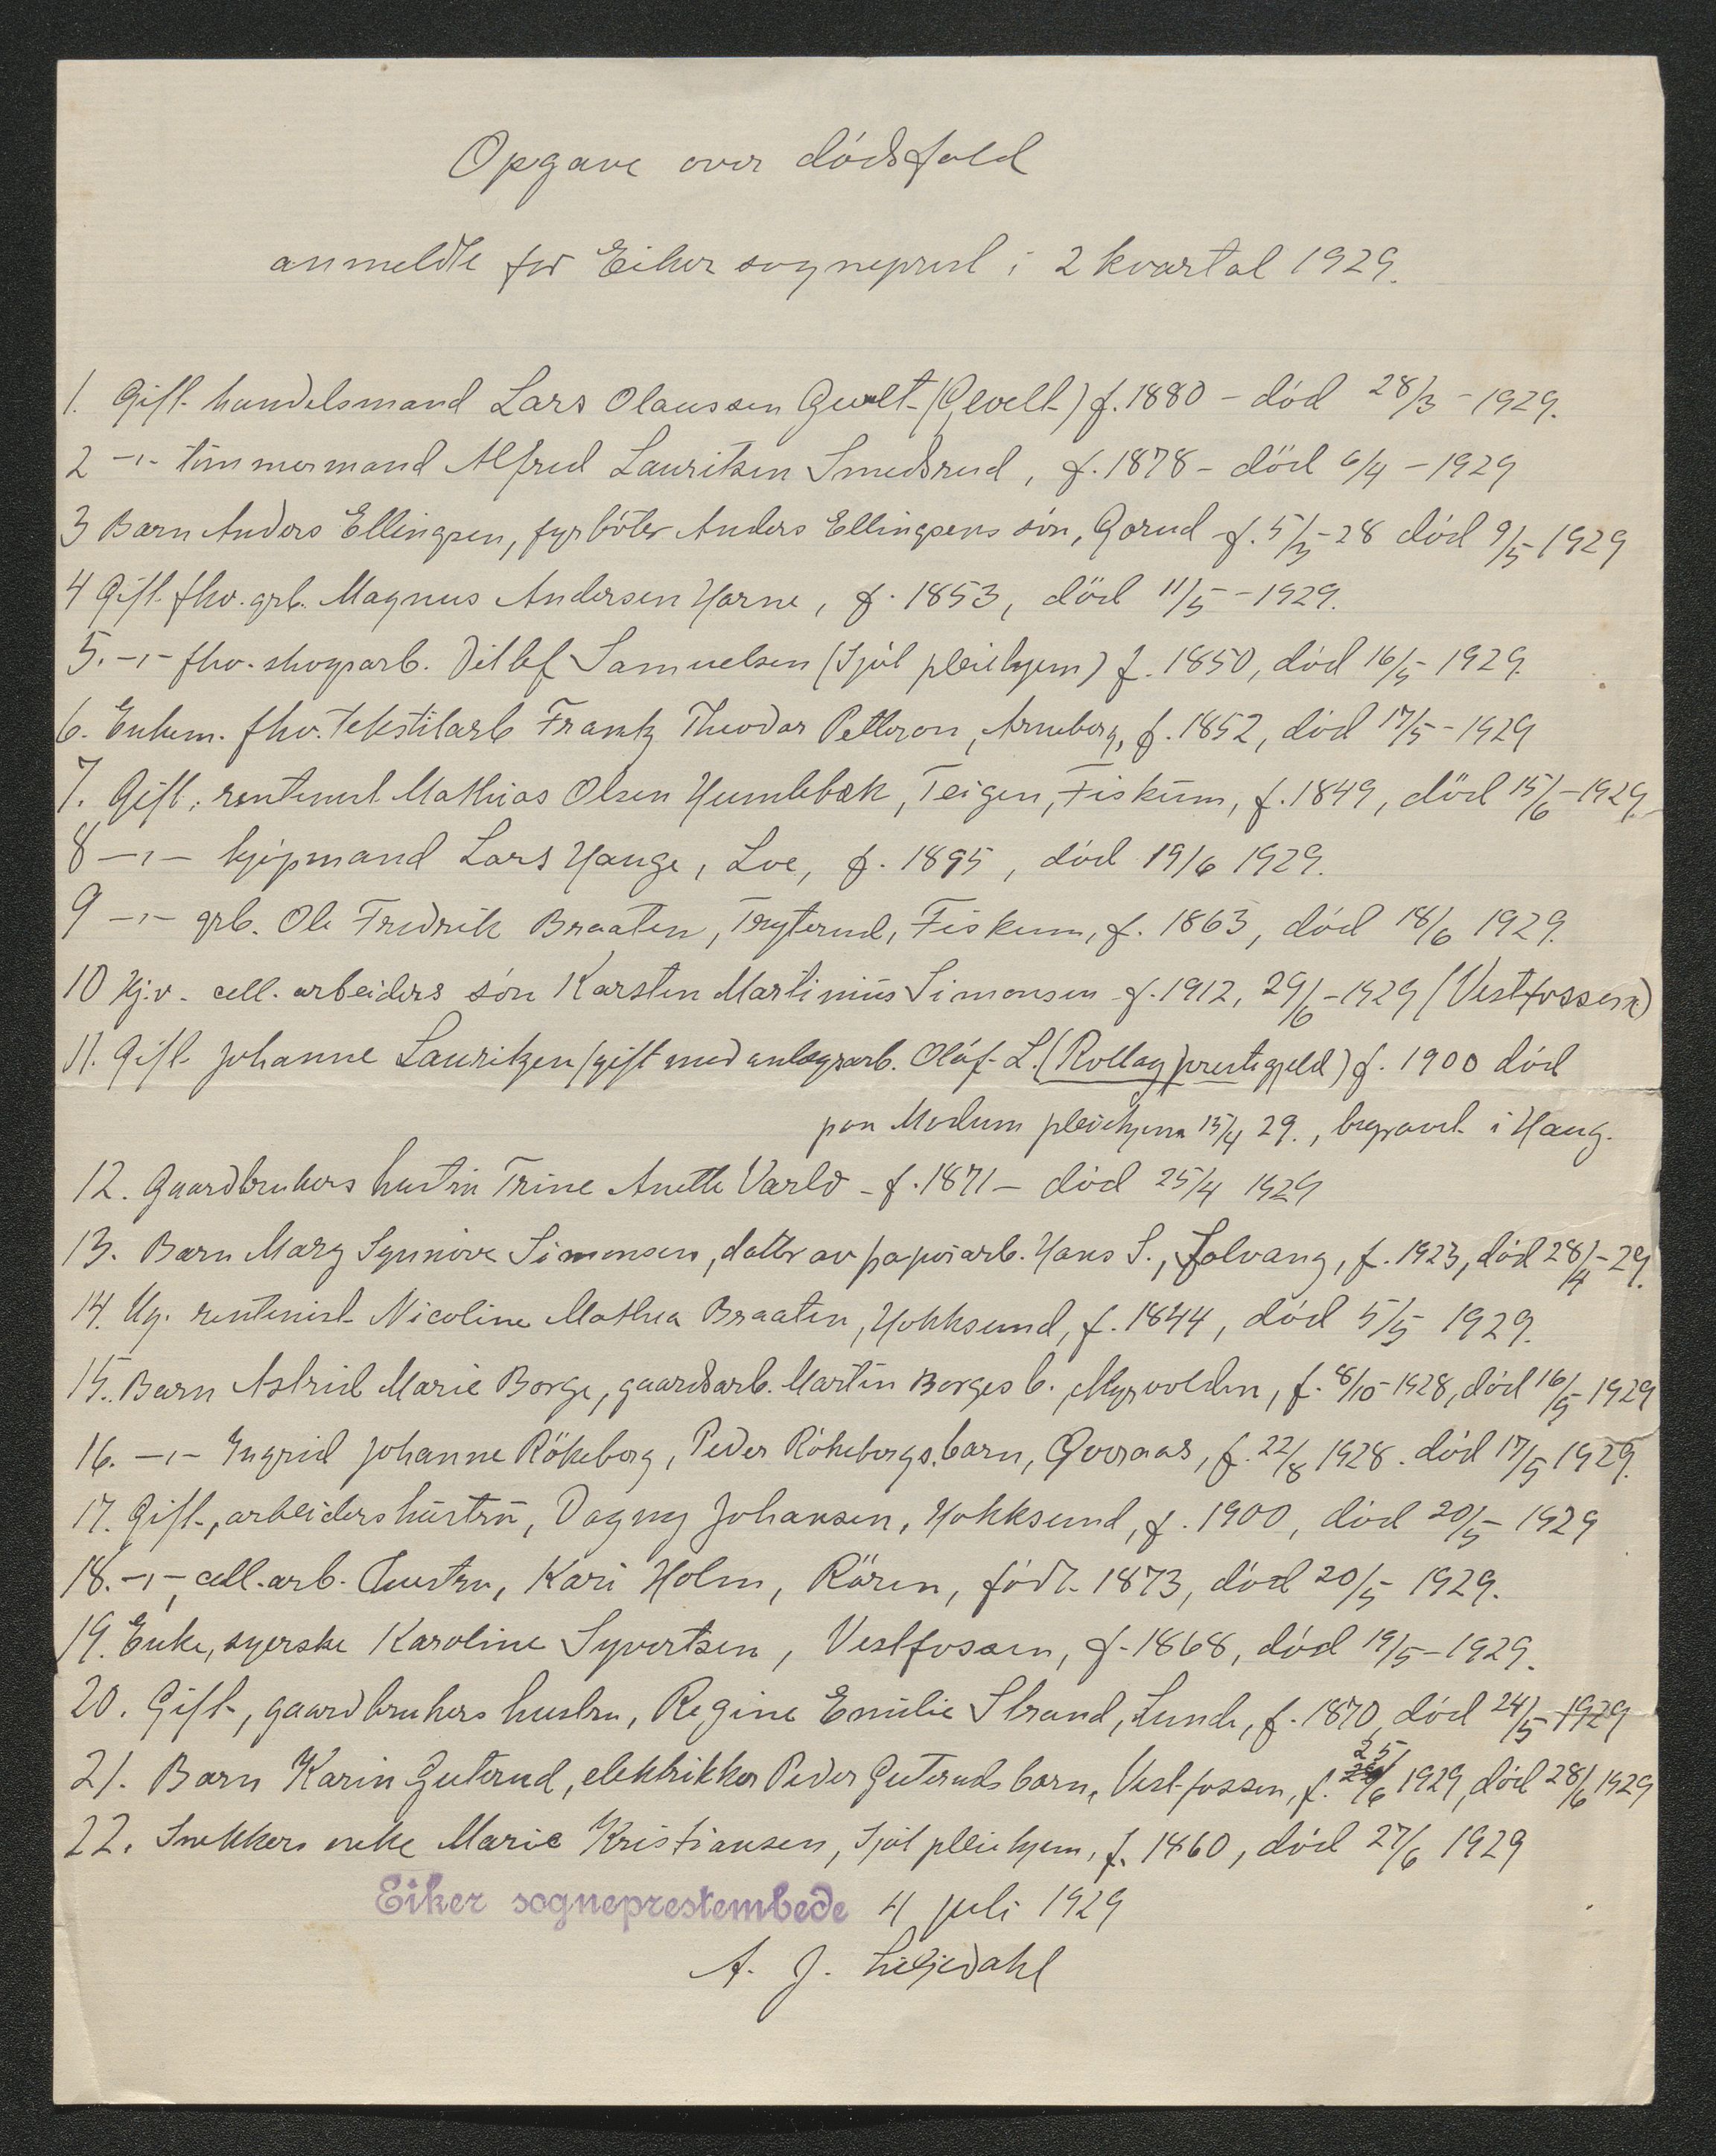 Opgave over dödsfald
anmeldte for Eiker sogneprest i 2 kvartal 1929.
1. Gift handelsmand Lars Olaussen Gevelt (Gevelt) f. 1880 - död 28/3 - 1929.
2 -"- tömmermand Alfred Lauritsen Smedsrud, f. 1878 - död 6/4 - 1929
3 Barn Anders Ellingsen, fyrböter Anders Ellingsens sön, Gorud f. 5/3-28 död 9/5-1929
4 Gift fhv. grb. Magnus Andersen Horne, f. 1853, död 11/5 - 1929.
5. -"- fhv. skogsarb. Ditlef Samuelsen (Sjöl pleiehjem) f. 1850, död 16/5-1929.
6. Enkem. fhv. tekstilarb Frantz Theodor Petterson, Arneberg, f. 1852, död 17/5-1929
7. Gift, rentenist Mathias Olsen Humlebæk, Teigen, Fiskum, f. 1849, död 15/6-1929.
8 -"- kjöpmand Lars Hauge, Loe, f. 1895, död 19/6 1929.
9 -"- grb. Ole Fredrik Braaten, Tryterud, Fiskum, f. 1863, död 18/6 1929.
10 Hj.v. cell. arbeiders sön Karsten Martinius Simonsen f. 1912, 29/6-1929 (Vestfossen)
11. Gift Johanne Lauritzen (gift med anlegsarb. Olaf L. (Rollag prestegjeld) f. 1900 död
paa Modum pleiehjem 15/4 29., begravet i Haug.
12. Gaardbrukers hustru Trine Anette Varlo - f. 1871 - död 25/4 1929
13. Barn Mary Synnöve Simonsen, datter av papirarb. Hans S., Solvang, f. 1923, död 28/4-29.
14. Ug. rentenist Nicoline Mathea Braaten, Hokksund, f. 1844, död 5/5 1929.
15. Barn Astrid Marie Borge, gaardsarb. Martin Borges b. Myrvolden, f. 8/10-1928, död 16/5-1929
16. -"- Ingrid Johanne Rökeberg, Peder Rökebergs barn, Qvernaas, f. 22/8 1928. död 17/5 1929.
17. Gift, arbeiders hustru, Dagny Johansen, Hokksund, f. 1900, död 20/5-1929
18. -"- cell. arb. hustru, Kari Holm, Rören, födt 1873, död 20/5-1929.
19. Enke, syerske Karoline Syvertsen, Vestfossen, f. 1868, död 19/5-1929.
20. Gift, gaardbrukers hustru, Regine Emilie Strand, Lunde, f. 1870, död 24/5-1929
21. Barn Karin Guterud, elektrikker Peder Guteruds barn, Vestfossen, f. 25/6 1929, död 28/6 1929
22. Snekkers enke Marie Kristiansen, Sjöl pleiehjem, f. 1860, död 27/6 1929
Eiker sogneprestembede 4 juli 1929
A. J. Liljedahl